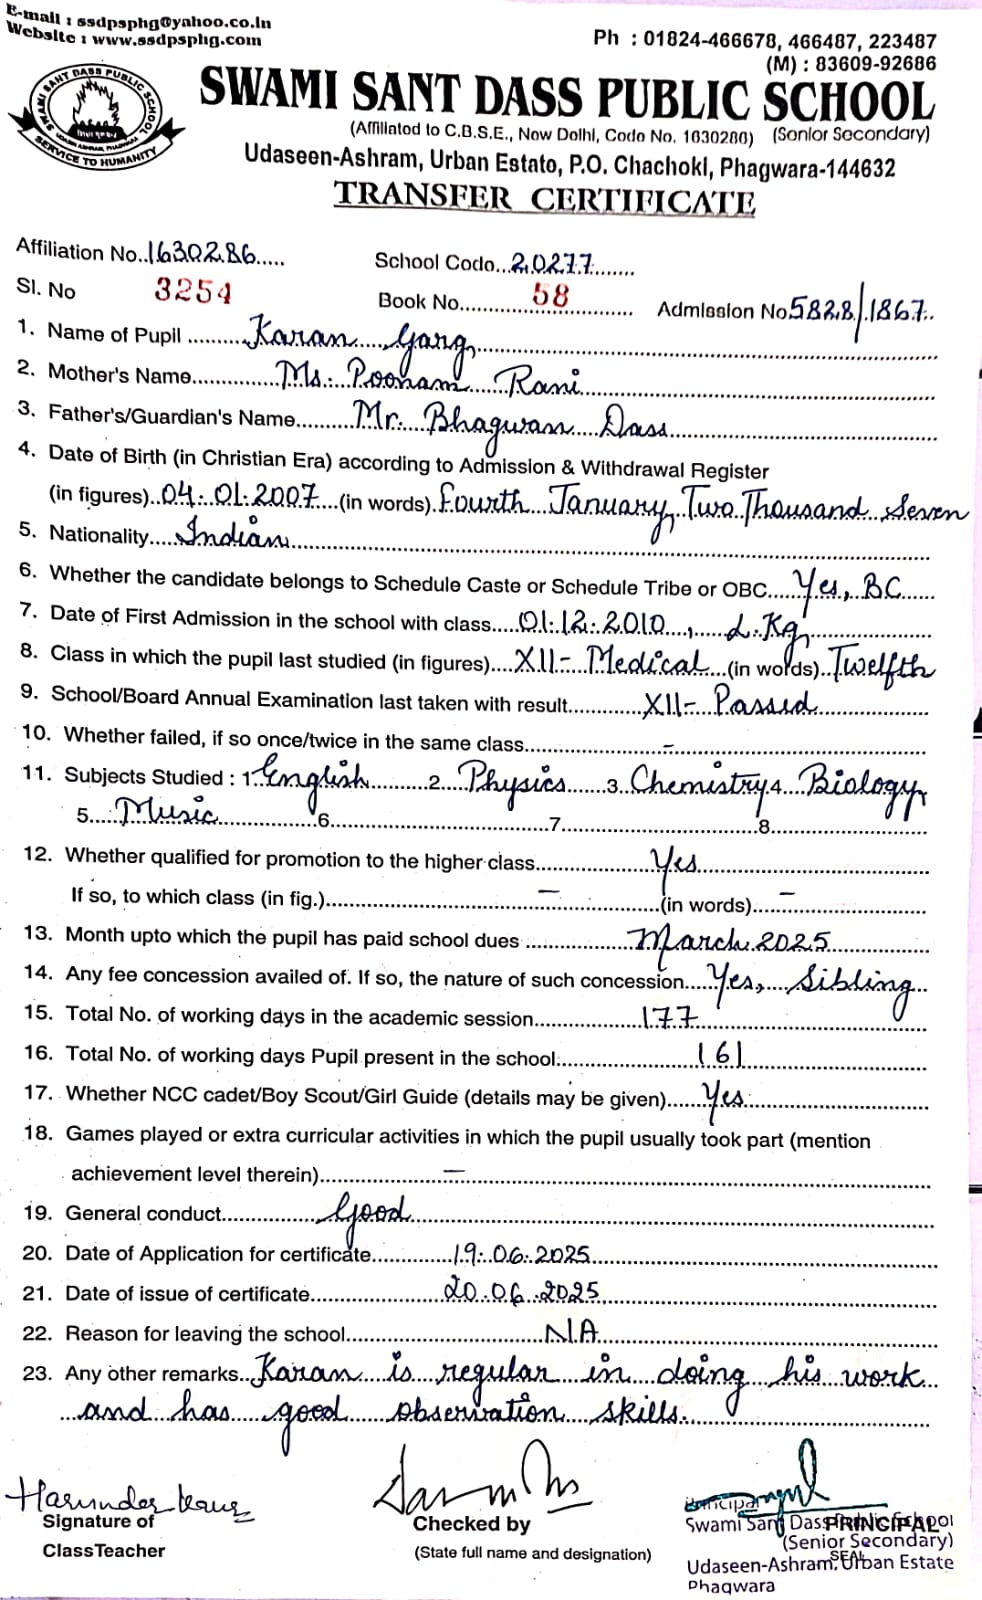 E-mail : ssdpsphg@yahoo.co.in
Website : www.ssdpsphg.com
Ph : 01824-466678, 466487, 223487
(M) : 83609-92686
SWAMI SANT DASS PUBLIC SCHOOL
SWAMI SANT DASS PUBLIC SCHOOL
SERVICE TO HUMANITY
(Affiliated to C.B.S.E., New Delhi, Code No. 1630286) (Senior Secondary)
Udaseen-Ashram, Urban Estate, P.O. Chachoki, Phagwara-144632
TRANSFER CERTIFICATE
Affiliation No..1630286..... School Code...20277........
Sl. No 3254 Book No.......58........ Admission No 5828/1867..
1. Name of Pupil ..........Karan Garg..........
2. Mother's Name..........Ms. Poonam Rani..........
3. Father's/Guardian's Name..........Mr. Bhagwan Dass..........
4. Date of Birth (in Christian Era) according to Admission & Withdrawal Register
(in figures)..04.01.2007....(in words).Fourth January, Two Thousand Seven
5. Nationality.....Indian..........
6. Whether the candidate belongs to Schedule Caste or Schedule Tribe or OBC.....Yes, BC.....
7. Date of First Admission in the school with class....01.12.2010, L.Kg..........
8. Class in which the pupil last studied (in figures)....XII- Medical...(in words)..Twelfth
9. School/Board Annual Examination last taken with result..........XII- Passed..........
10. Whether failed, if so once/twice in the same class..........-..........
11. Subjects Studied : 1. English........2...Physics.....3. Chemistry 4...Biology
5.....Music..........6..........7..........8..........
12. Whether qualified for promotion to the higher class..........Yes..........
If so, to which class (in fig.)..........–..........(in words)....–..........
13. Month upto which the pupil has paid school dues ..........March 2025..........
14. Any fee concession availed of. If so, the nature of such concession.....Yes, Sibling..
15. Total No. of working days in the academic session..........177..........
16. Total No. of working days Pupil present in the school..........161..........
17. Whether NCC cadet/Boy Scout/Girl Guide (details may be given)......Yes..........
18. Games played or extra curricular activities in which the pupil usually took part (mention
achievement level therein)..........–..........
19. General conduct..........Good..........
20. Date of Application for certificate..........19.06.2025..........
21. Date of issue of certificate..........20.06.2025..........
22. Reason for leaving the school..........NA..........
23. Any other remarks..Karan is regular in doing his work...
...and has good observation skills...........
Harvinder Kaur
Signature of
ClassTeacher
Checked by
(State full name and designation)
Principal
Swami Sant Dass School
PRINCIPAL
(Senior Secondary)
SEAL
Udaseen-Ashram, Urban Estate
Phagwara